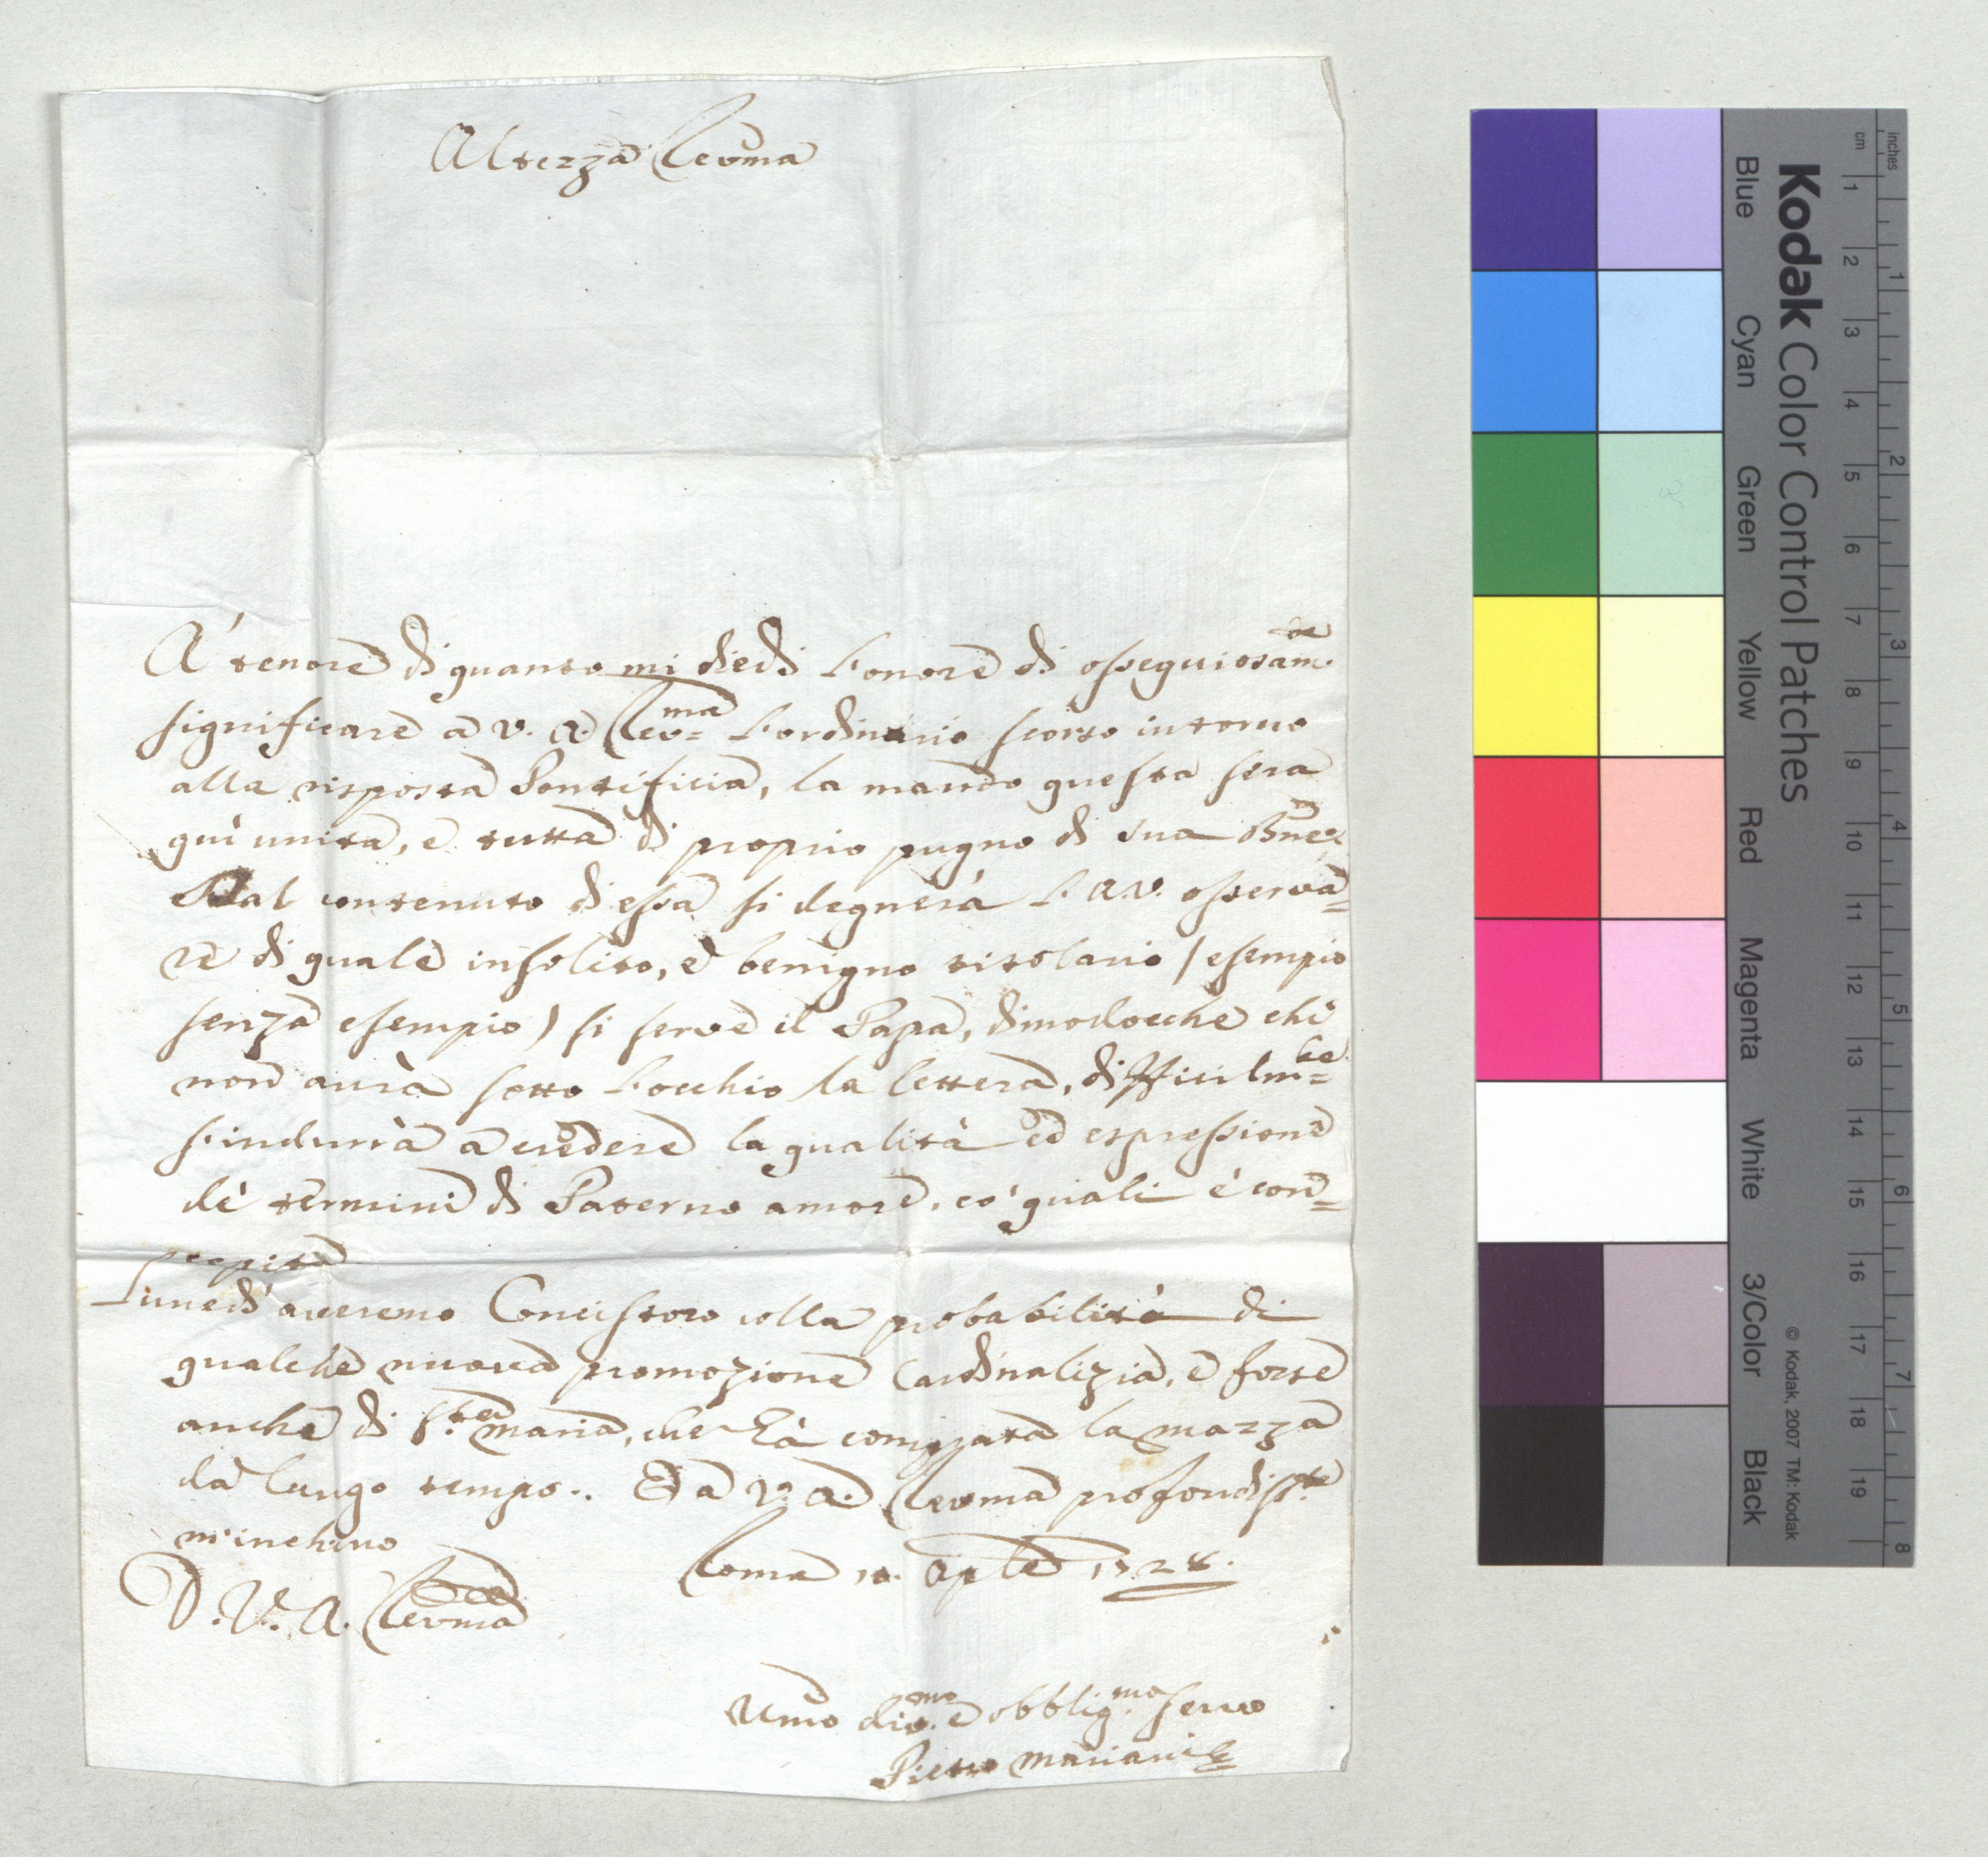 Altezza Revma
A' tenore di quanto mi diedi l'onore di ossequiosam.te
significare a V. A. Rev.ma l'ordinario scorso intorno
alla risposta Pontificia, la mando questa sera
qui unita, e tutta di proprio pugno di Sua Bne.
Dal contenuto di essa si degnerà l'A.V. osserva=
re di quale insolito, e benigno titolario (esempio
senza esempio) si serve il Papa, dimodocche chi
non aurà sotto l'occhio la lettera, difficilm.te
s'indurrà a credere la qualità ed espressione
de' termini di Paterno amore, co' quali è con=
cepita
Lunedì averemo Concistoro colla probabilità di
qualche nuova promozione Cardinalizia, e forse
anche di S.ta Maria, che hà comprata la mazza
da lungo tempo.. Ed a V. A. Revma profondis.te
m'inchino
Roma 10. Aple 1728.
D. V. A. Revma
Umo div.mo e obblig.mo servo
Pietro Mariani
Kodak Color Control Patches
Blue Cyan Green Yellow Red Magenta White 3/Color Black
© Kodak, 2007 TM: Kodak
inches 1 2 3 4 5 6 7 8
cm 1 2 3 4 5 6 7 8 9 10 11 12 13 14 15 16 17 18 19